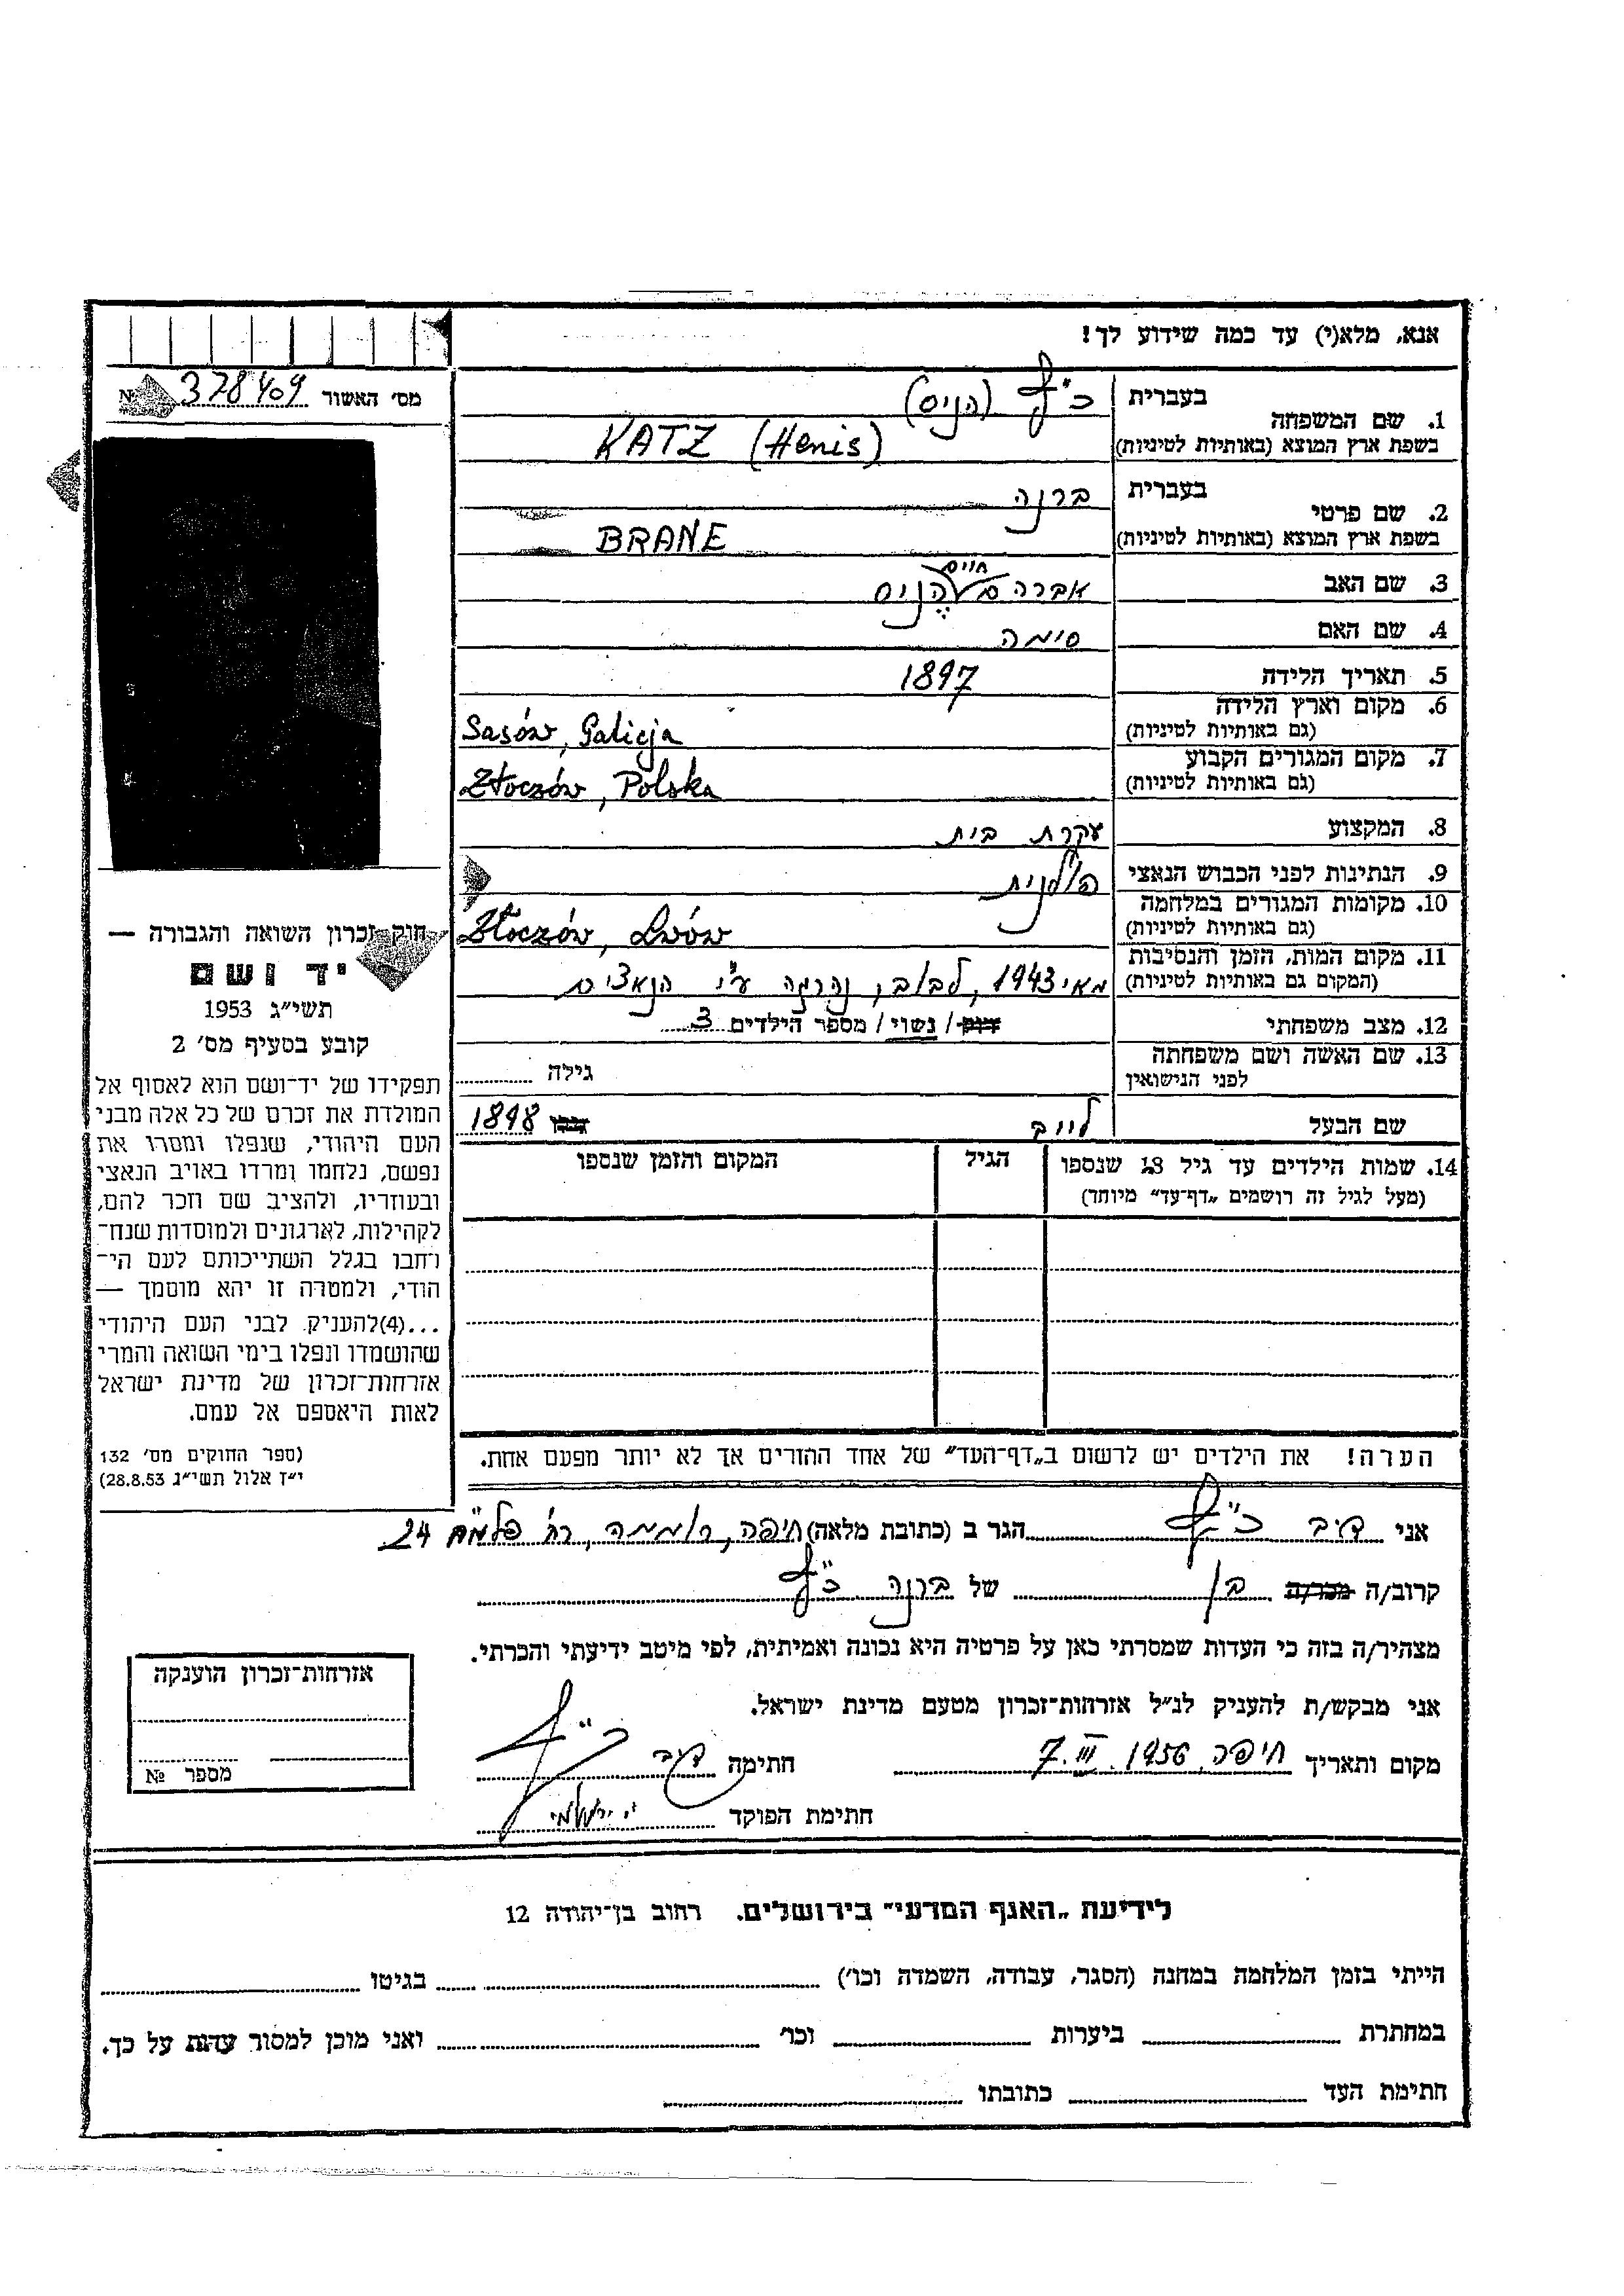 אנא, מלא(י) עד כמה שידוע לך!
מס' האשור № 378409
1. שם המשפחה
בעברית כ"ץ (הניס)
בשפת ארץ המוצא (באותיות לטיניות) KATZ (Henis)
2. שם פרטי
בעברית ברנה
בשפת ארץ המוצא (באותיות לטיניות) BRANE
3. שם האב אברהם חיים הניס
4. שם האם סימה
5. תאריך הלידה 1897
6. מקום וארץ הלידה
(גם באותיות לטיניות) Sasów, Galicja
7. מקום המגורים הקבוע
(גם באותיות לטיניות) Złoczów, Polska
8. המקצוע עקרת בית
9. הנתינות לפני הכבוש הנאצי פולנית
10. מקומות המגורים במלחמה
(גם באותיות לטיניות) Złoczów, Lwów
11. מקום המות, הזמן והנסיבות
(המקום גם באותיות לטיניות) מאי 1943, לבוב, נהרגה ע"י הנאצים
12. מצב משפחתי רווק / נשוי / מספר הילדים 3
13. שם האשה ושם משפחתה
לפני הנישואין גילה
שם הבעל לייב גילו 1898
14. שמות הילדים עד גיל 18 שנספו הגיל המקום והזמן שנספו
(מעל לגיל זה רושמים „דף־עד" מיוחד)
הערה! את הילדים יש לרשום ב„דף־העד" של אחד ההורים אך לא יותר מפעם אחת.
חוק זכרון השואה והגבורה —
יד ושם
תשי"ג 1953
קובע בסעיף מס' 2
תפקידו של יד־ושם הוא לאסוף אל
המולדת את זכרם של כל אלה מבני
העם היהודי, שנפלו ומסרו את
נפשם, נלחמו ומרדו באויב הנאצי
ובעוזריו, ולהציב שם וזכר להם,
לקהילות, לארגונים ולמוסדות שנח־
רחבו בגלל השתייכותם לעם הי־
הודי, ולמטרה זו יהא מוסמך —
...(4)להעניק לבני העם היהודי
שהושמדו ונפלו בימי השואה והמרי
אזרחות־זכרון של מדינת ישראל
לאות היאספם אל עמם.
(ספר החוקים מס' 132
י"ז אלול תשי"ג 28.8.53)
אני דב כ"ץ הגר ב (כתובת מלאה) חיפה, רוממה, רח' פלמ"ח 24
קרוב/ה מכר/ה בן של ברנה כ"ץ
מצהיר/ה בזה כי העדות שמסרתי כאן על פרטיה היא נכונה ואמיתית, לפי מיטב ידיעתי והכרתי.
אני מבקש/ת להעניק לנ"ל אזרחות־זכרון מטעם מדינת ישראל.
מקום ותאריך חיפה, 7.III.1956 חתימה דב כ"ץ
חתימת הפוקד
אזרחות־זכרון הוענקה
מספר №
לידיעת „האגף המדעי" בירושלים. רחוב בן־יהודה 12
הייתי בזמן המלחמה במחנה (הסגר, עבודה, השמדה וכו') בגיטו
במחתרת ביערות וכו' ואני מוכן למסור עדות על כך.
חתימת העד כתובתו